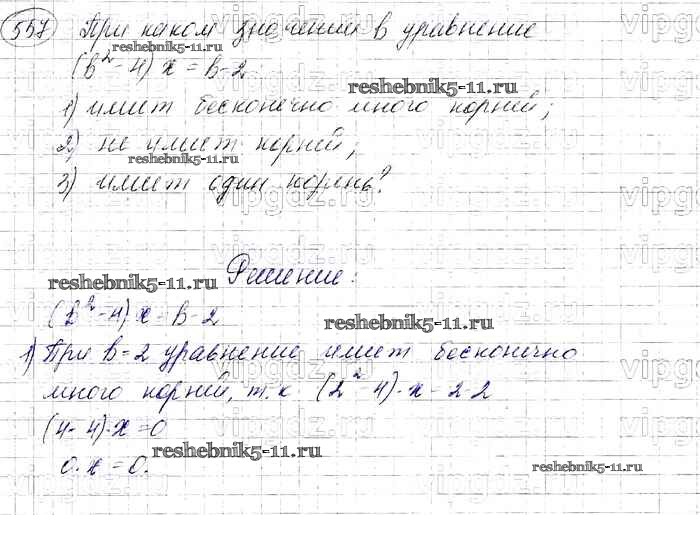 557 При каком значении в уравнение
reshebnik5-11.ru
(в²-4)х=в-2
reshebnik5-11.ru
1) имеет бесконечно много корней;
2) не имеет корней;
reshebnik5-11.ru
3) имеет один корень?
vipgdz.ru
Решение:
reshebnik5-11.ru
(в²-4)·х=в-2
reshebnik5-11.ru
1) При в=2 уравнение имеет бесконечно
много корней, т.к (2²-4)·х=2-2
(4-4)·х=0
reshebnik5-11.ru
0·х=0.
reshebnik5-11.ru